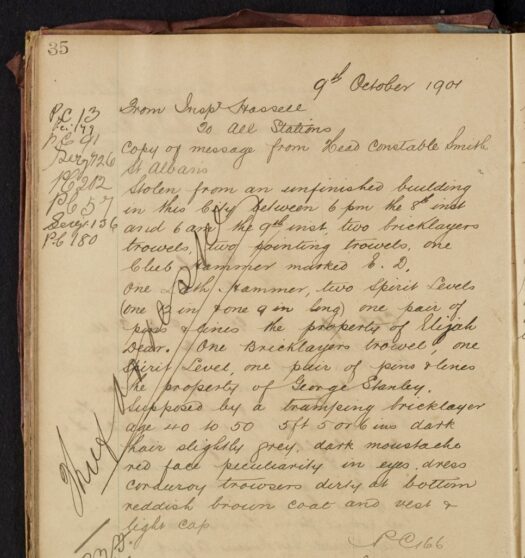 35
9th October 1901
P.C 13
P.C 91
Serg 726
P.C 202
P.C 57
Serg. 136
P.C 180
From Inspr Hassell
To All Stations
Copy of message from Head Constable Smith
St Albans
Stolen from an unfinished building
in this City between 6 pm the 8th inst
and 6 am the 9th inst, two bricklayers
trowels, two pointing trowels, one
Club Hammer marked E. D.
One Lath Hammer, two Spirit Levels
(one in & one 9 in long) one pair of
pins & lines the property of Elijah
Dear. One Bricklayers trowel, one
Spirit Level, one pair of pins & lines
the property of George Stanley.
Supposed by a tramping bricklayer
age 40 to 50 5ft 5 or 6 ins dark
hair slightly grey, dark moustache
red face peculiarity in eyes, dress
corduroy trowsers dirty at bottom
reddish brown coat and vest &
light cap
P.C 166
Thief